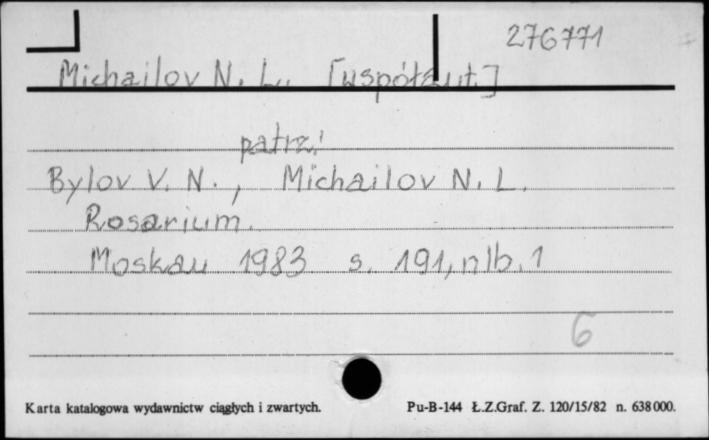 276771
Michailov N. L. [współaut.]
patrz:
Bylov V. N., Michailov N. L.
Rosarium.
Moskau 1983 s. 191, nlb. 1
6
Karta katalogowa wydawnictw ciągłych i zwartych. Pu-B-144 Ł.Z.Graf. Z. 120/15/82 n. 638000.